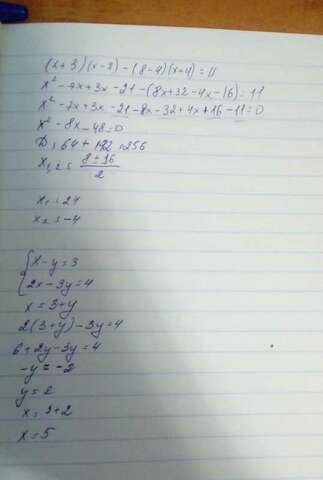 (x+3)(x-7)-(8-4)(x+4)=11
x²-7x+3x-21-(8x+32-4x-16)=11
x²-7x+3x-21-8x-32+4x+16-11=0
x²-8x-48=0
D=64+192=256
x₁,₂=(8±16)/2
x₁=24
x₂=-4
{x-y=3
2x-3y=4
x=3+y
2(3+y)-3y=4
6+2y-3y=4
-y=-2
y=2
x=3+2
x=5